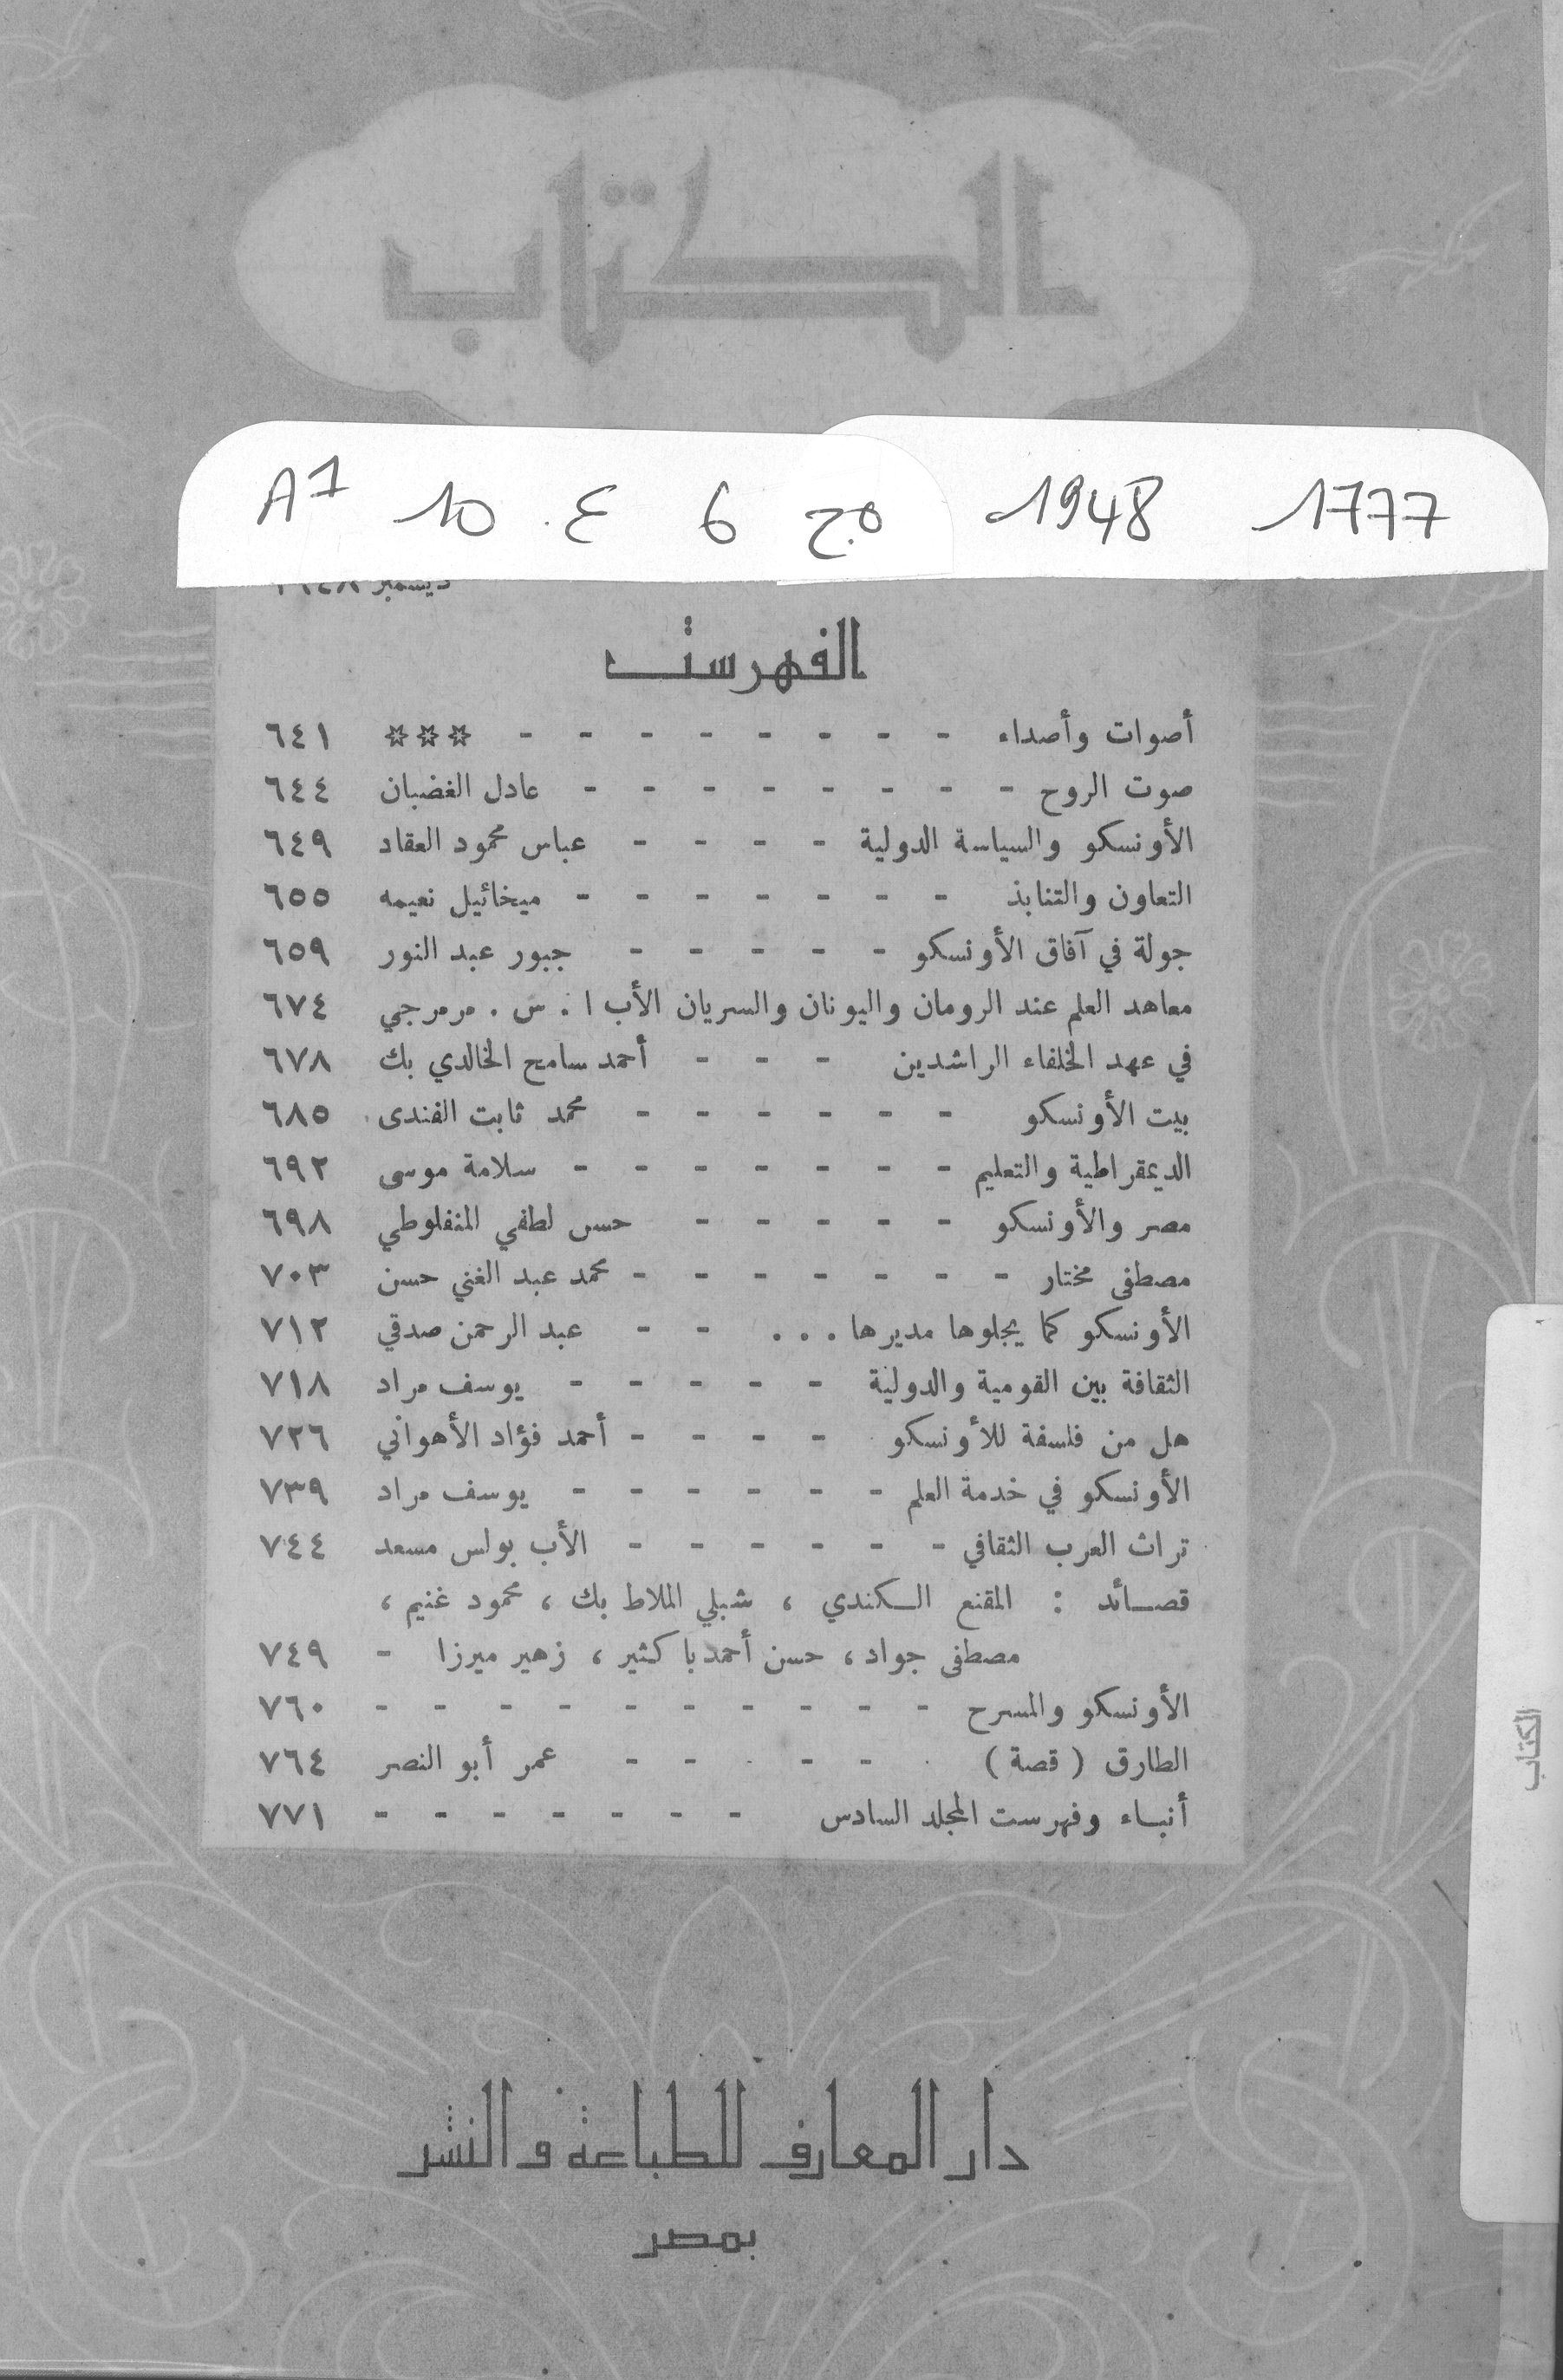 الكتاب
1777 1948 ج.٥ 6 ع. 10 A7
ديسمبر ١٩٤٨
الفهرست
أصوات وأصداء - - - - - - - - *** ٦٤١
صوت الروح - - - - - - - - عادل الغضبان ٦٤٤
الأونسكو والسياسة الدولية - - - - عباس محمود العقاد ٦٤٩
التعاون والتنابذ - - - - - - - ميخائيل نعيمه ٦٥٥
جولة في آفاق الأونسكو - - - - - جبور عبد النور ٦٥٩
معاهد العلم عند الرومان واليونان والسريان الأب ا . س . مرمرجي ٦٧٤
في عهد الخلفاء الراشدين - - - أحمد سامح الخالدي بك ٦٧٨
بيت الأونسكو - - - - - - محمد ثابت الفندى ٦٨٥
الديمقراطية والتعليم - - - - - - - سلامة موسى ٦٩٢
مصر والأونسكو - - - - - حسن لطفي المنفلوطي ٦٩٨
مصطفى مختار - - - - - - - محمد عبد الغني حسن ٧٠٣
الأونسكو كما يجلوها مديرها . . . - - عبد الرحمن صدقي ٧١٢
الثقافة بين القومية والدولية - - - - - يوسف مراد ٧١٨
هل من فلسفة للأونسكو - - - - أحمد فؤاد الأهواني ٧٢٦
الأونسكو في خدمة العلم - - - - - - يوسف مراد ٧٣٩
تراث العرب الثقافي - - - - - - الأب بولس مسعد ٧٤٤
قصائد : المقنع الكندي ، شبلي الملاط بك ، محمود غنيم ،
مصطفى جواد ، حسن أحمد باكثير ، زهير ميرزا - ٧٤٩
الأونسكو والمسرح - - - - - - - - - - ٧٦٠
الطارق ( قصة ) - - - - - عمر أبو النصر ٧٦٤
أنباء وفهرست المجلد السادس - - - - - - - ٧٧١
دار المعارف للطباعة والنشر
بمصر
الكتاب